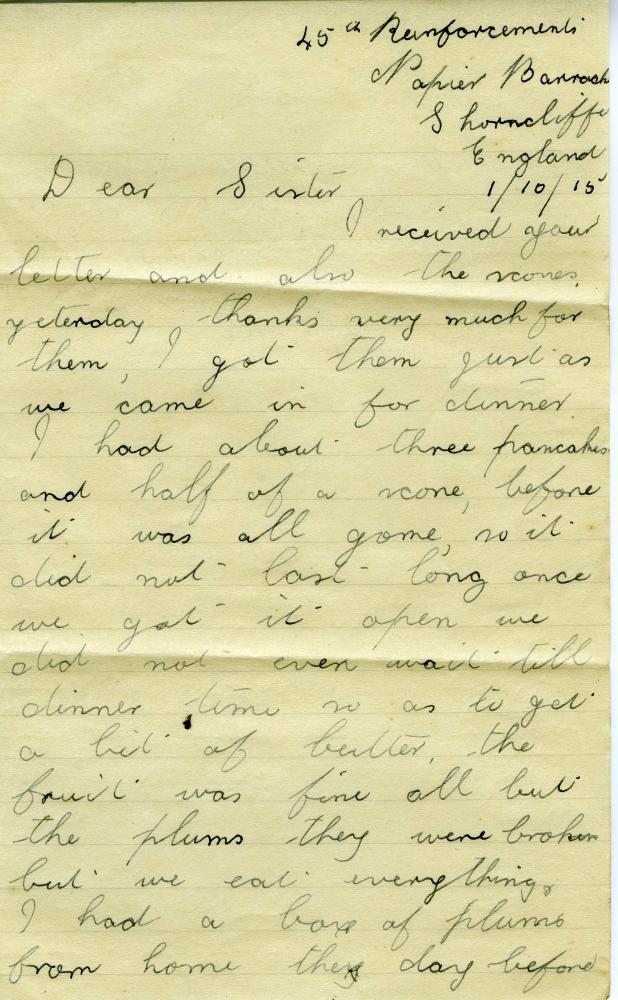 45th Reinforcements
Napier Barrack
Shorncliffe
England
1/10/15
Dear Sister
I received your
letter and also the scones
yeterday thanks very much for
them, I got them just as
we came in for dinner.
I had about three pancakes
and half of a scone, before
it was all gome, so it
did not last long once
we got it open we
did not even wait till
dinner time so as to get
a bit of butter, the
fruit was fine all but
the plums they were broken
but we eat everything,
I had a box of plums
from home they day before